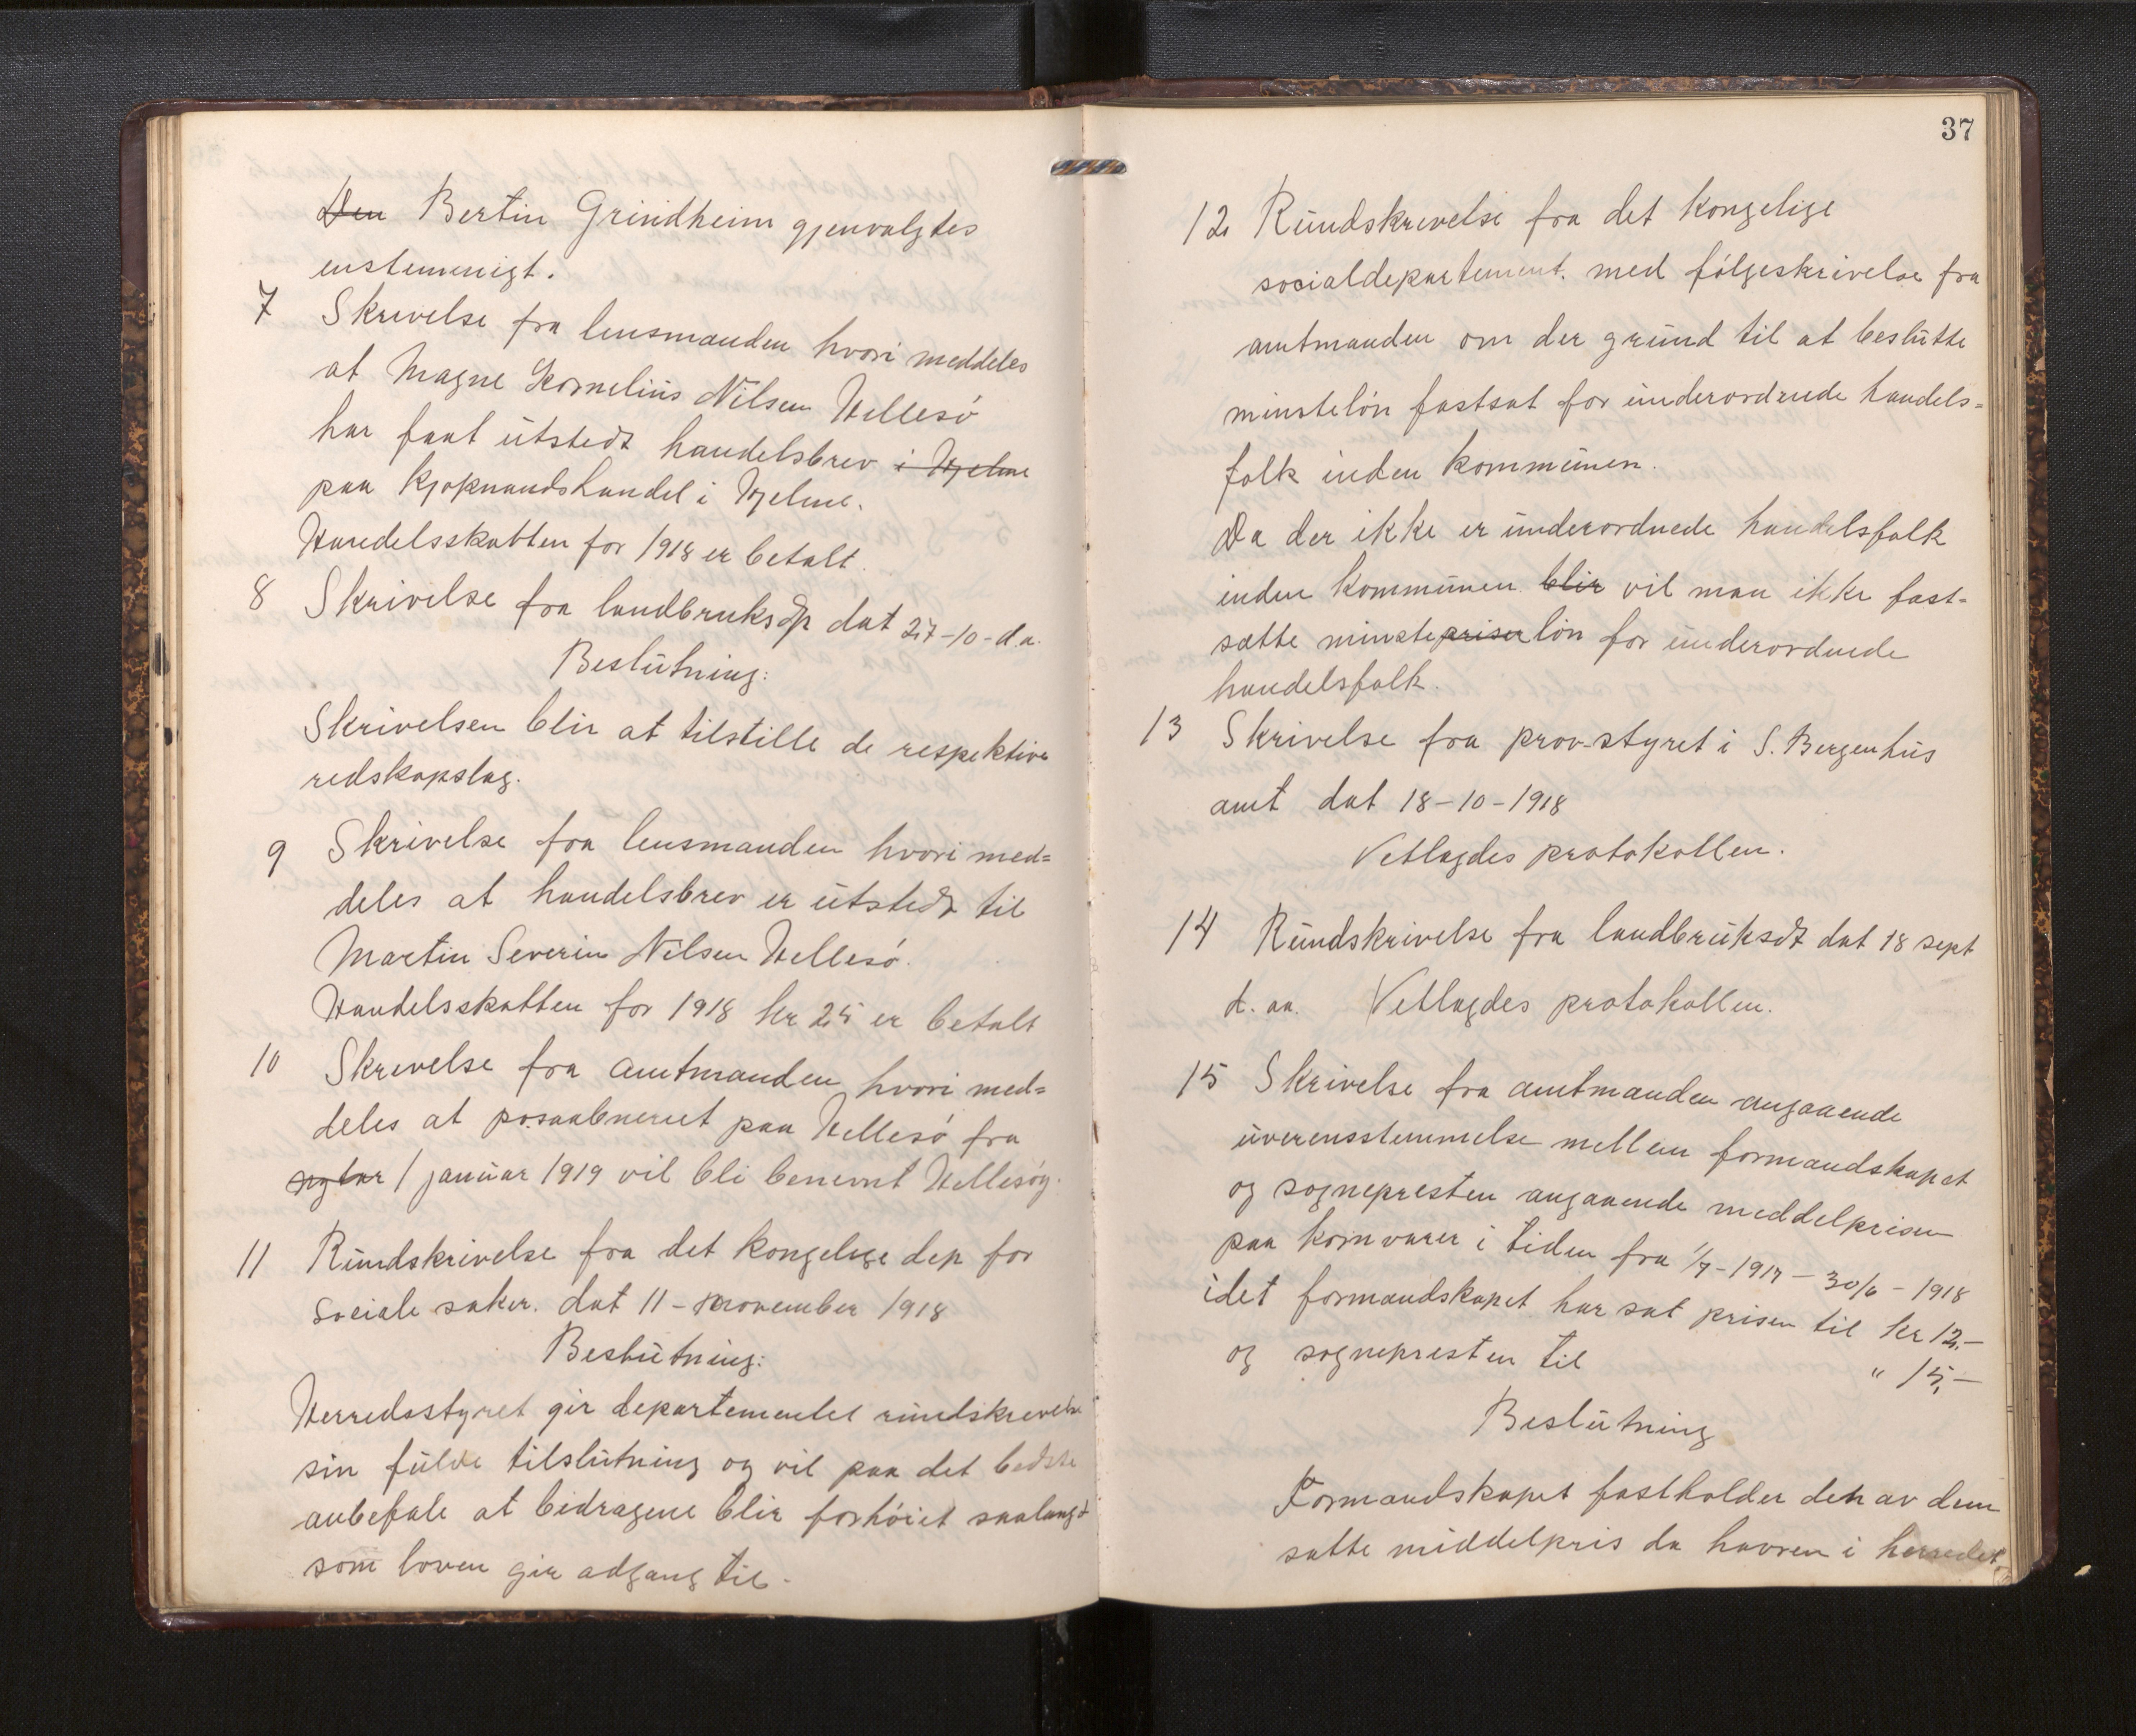 Den Bertin Grindheim gjenvalgtes
enstemmigt.
7 Skrivelse fra lensmanden hvori meddeles
at Magne Kornelius Nilsen Hellesö
har faat utstedt handelsbrev i Hjelme
paa kjøpmandshandel i Hjelme.
Handelsskatten for 1918 er betalt.
8 Skrivelse fra landbruksdp dat 27-10-d.a.
Beslutning:
Skrivelsen blir at tilstille de respektive
redskapslag.
9 Skrivelse fra lensmanden hvori med=
deles at handelsbrev er utstedt til
Martin Severin Nilsen Hellesö.
Handelsskatten for 1918 kr 25 er betalt
10 Skrivelse fra amtmanden hvori med=
deles at posaabneriet paa Hellesö fra
nytar 1 januar 1919 vil bli benevnt Hellesöy.
11 Rundskrivelse fra det kongelige dep for
sociale saker. dat 11-november 1918
Beslutning:
Herredsstyret gir departementet rundskrivelse
sin fulde tilslutning og vil paa det bedste
anbefale at bidragene blir forhöiet saalangt
som loven gir adgang til.
37
12 Rundskrivelse fra det kongelige
socialdepartement. med fölgeskrivelse fra
amtmanden om der grund til at beslutte
minstelön fastsat for underordnede handels=
folk inden kommunen.
Da der ikke er underordnede handelsfolk
inden kommunen blir vil man ikke fast-
sætte minstepriser lön for underordnede
handelsfolk.
13 Skrivelse fra prov-styret i S. Bergenhus
amt dat 18-10-1918
Vetlagdes protokollen.
14 Rundskrivelse fra landbruksdt dat 18 sept
d. aa. Vetlagdes protokollen.
15 Skrivelse fra amtmanden angaaende
uverensstemmelse mellem formandskapet
og sognepresten angaaende meddelprisen
paa kornvarer i tiden fra 1/7-1917-30/6-1918
idet formandskapet har sat prisen til kr 12,-
og sognepresten til " 15,-
Beslutning
Formandskapet fastholder den av dem
satte middelpris da havren i herredet